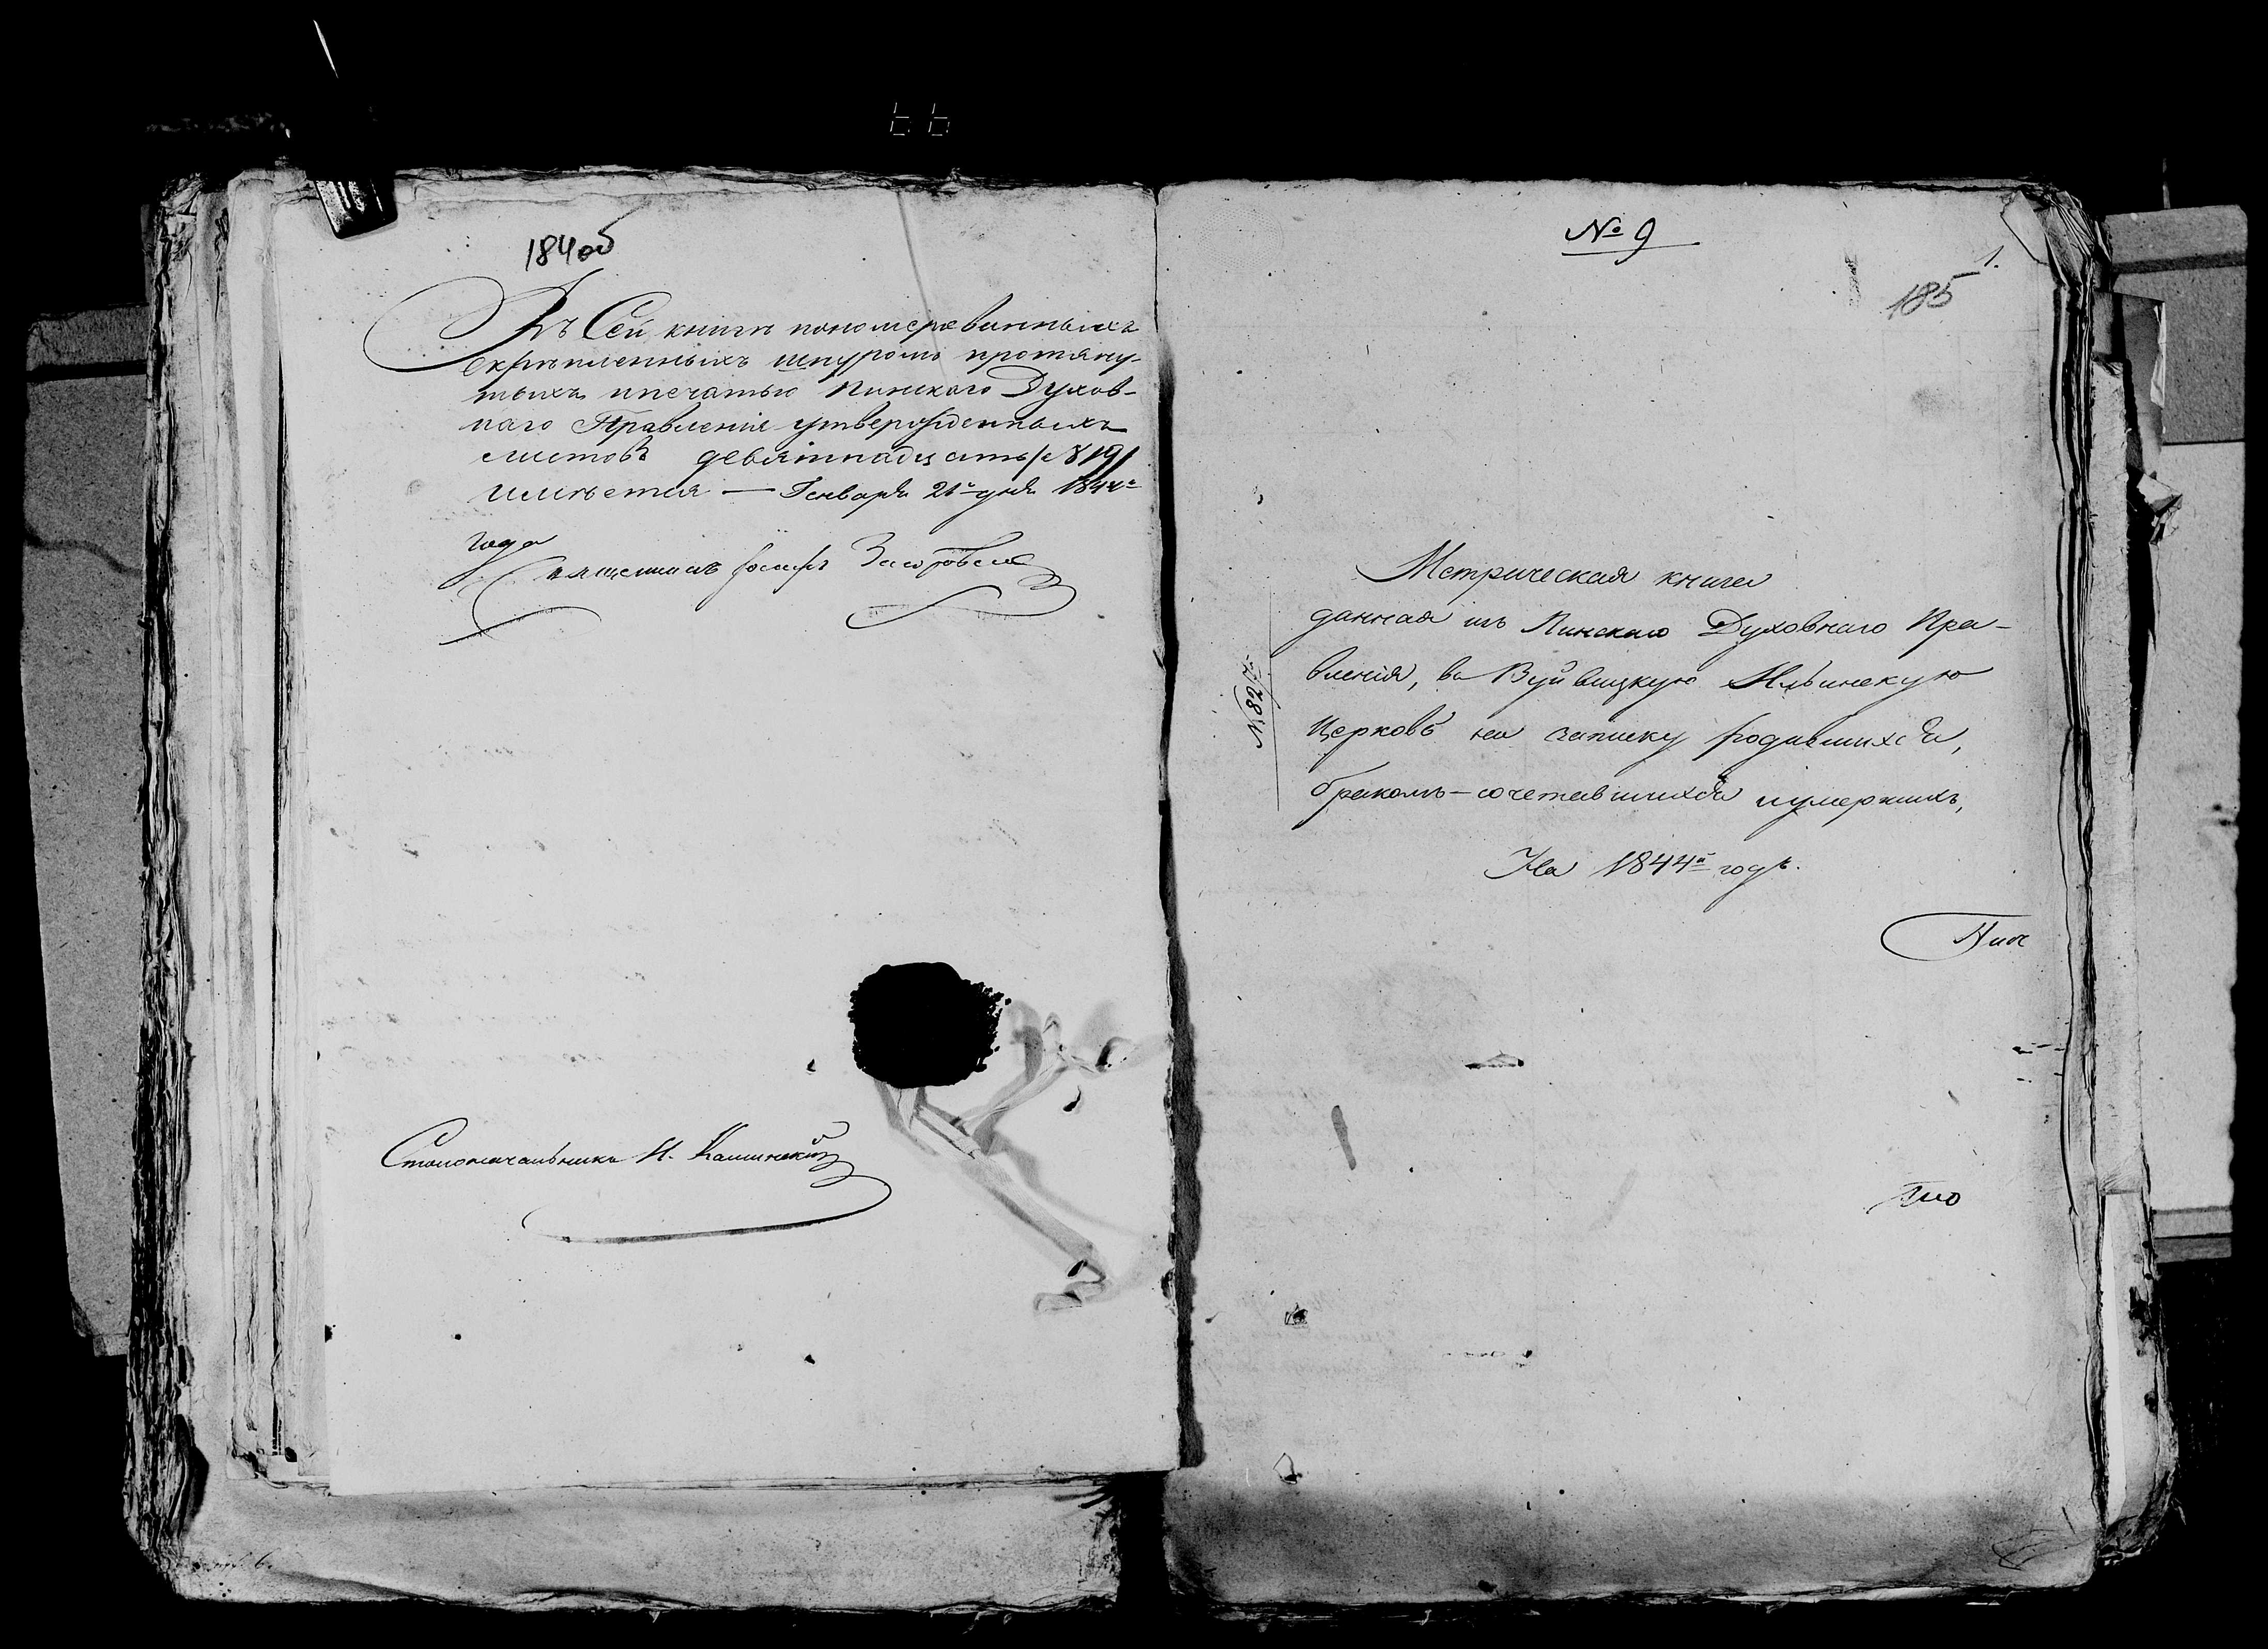 184об
Въ Сей книгѣ пономерованныхъ
скрѣпленныхъ шнуромъ протяну-
тыхъ и печатью Пинскаго Духов-
наго Правленія утвержденныхъ
листовъ девятнадцать /№ 19/
имѣется — Генваря 21го дня 1844го
года
Священникъ Іосифъ
Столоначальникъ И. Калинскій
№ 9
1.
185
№ 82
Метрическая книга
данная изъ Пинскаго Духовнаго Пра-
вленія, въ Вуйвицкую Ильинскую
Церковь на записку родившихся,
бракомъ-сочетавшихся и умершихъ,
На 1844й годъ.